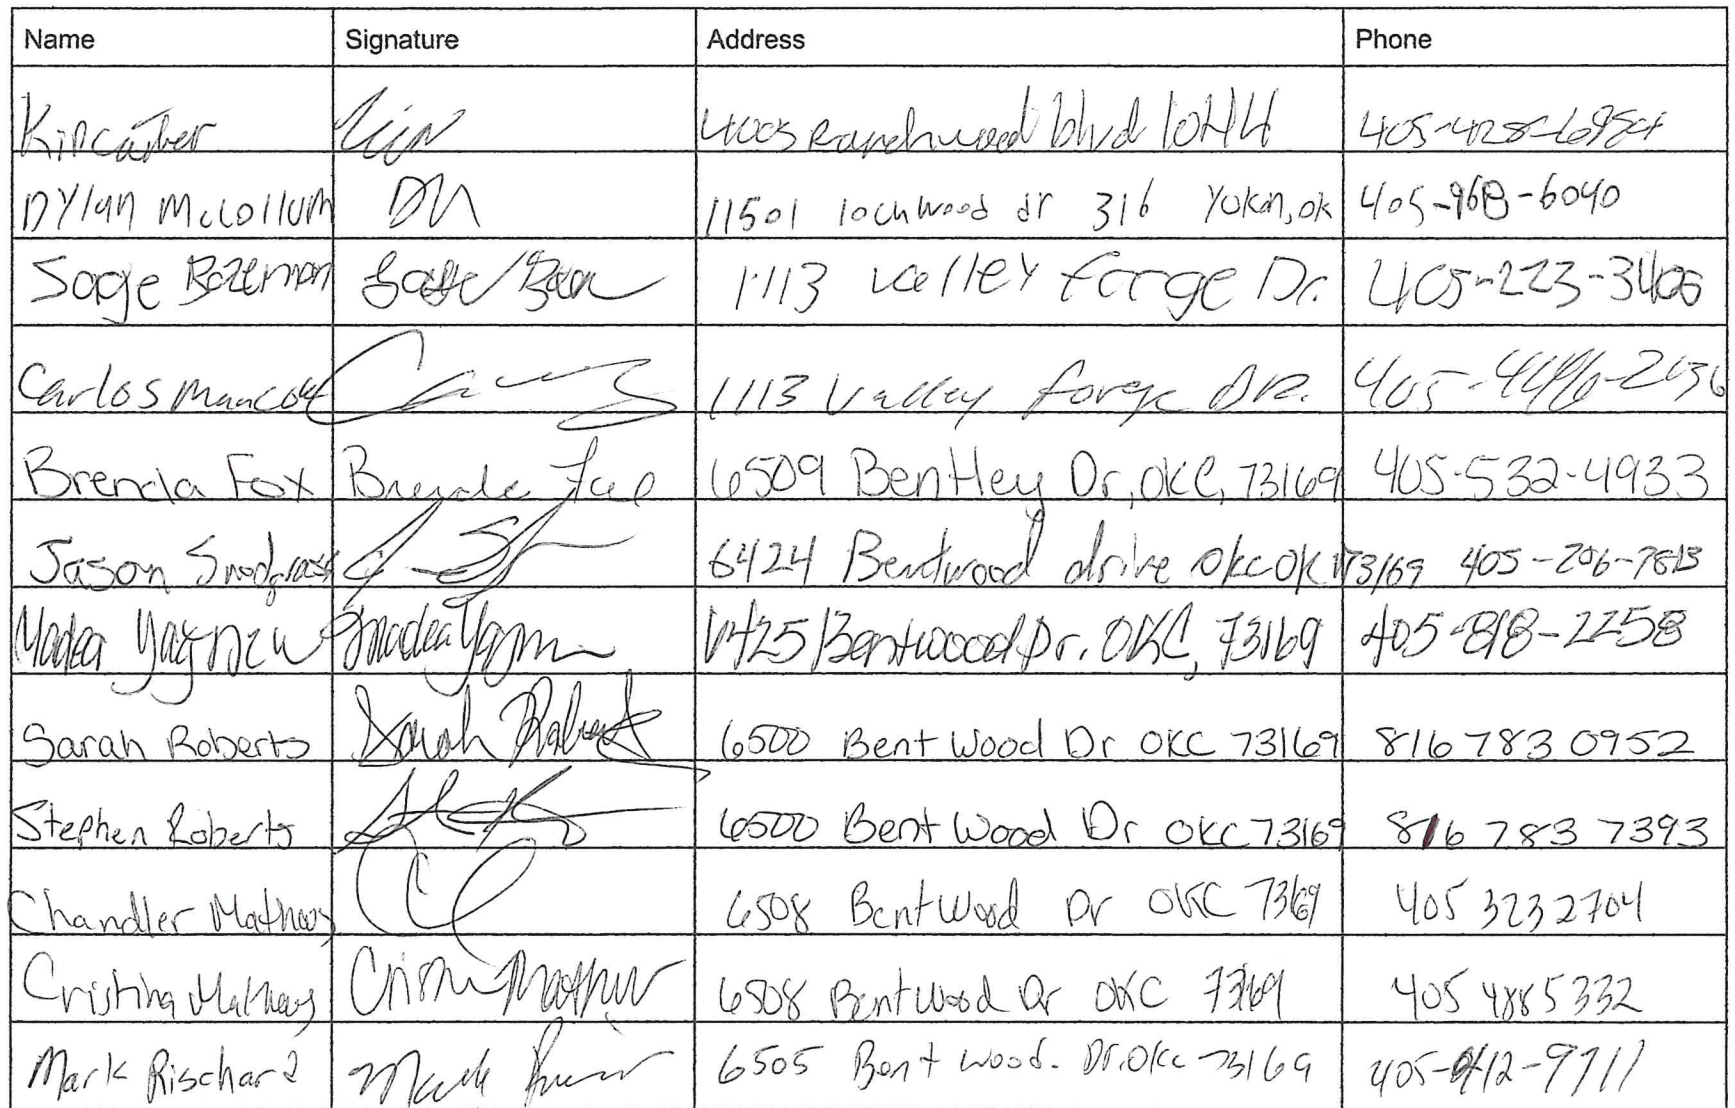 Name Signature Address Phone
4005 Ranchwood blvd
Dylan McCollum DM 11501 lochwood dr 316 Yukon, ok 405-968-6040
Sage Bozeman 1113 Valley forge Dr. 405-223-3406
Carlos 1113 Valley forge DR. 405-
Brenda Fox Brenda Fox 6509 Bentley Dr, OKC, 73169 405-532-4933
Jason Snodgrass 6424 Bentwood drive okc ok 73169 405-206-7813
6425 Bentwood Dr. OKC, 73169 405-818-2258
Sarah Roberts Sarah Roberts 6500 Bent Wood Dr OKC 73169 816 783 0952
Stephen Roberts 6500 Bent Wood Dr OKC 73169 816 783 7393
Chandler Mathews 6508 Bent Wood Dr OKC 7369 405 323 2704
Cristina Mathews 6508 Bent Wood Dr OKC 73169 405 488 5332
Mark Rischard Mark 6505 Bent wood. Dr. OKc 73169 405-412-9711